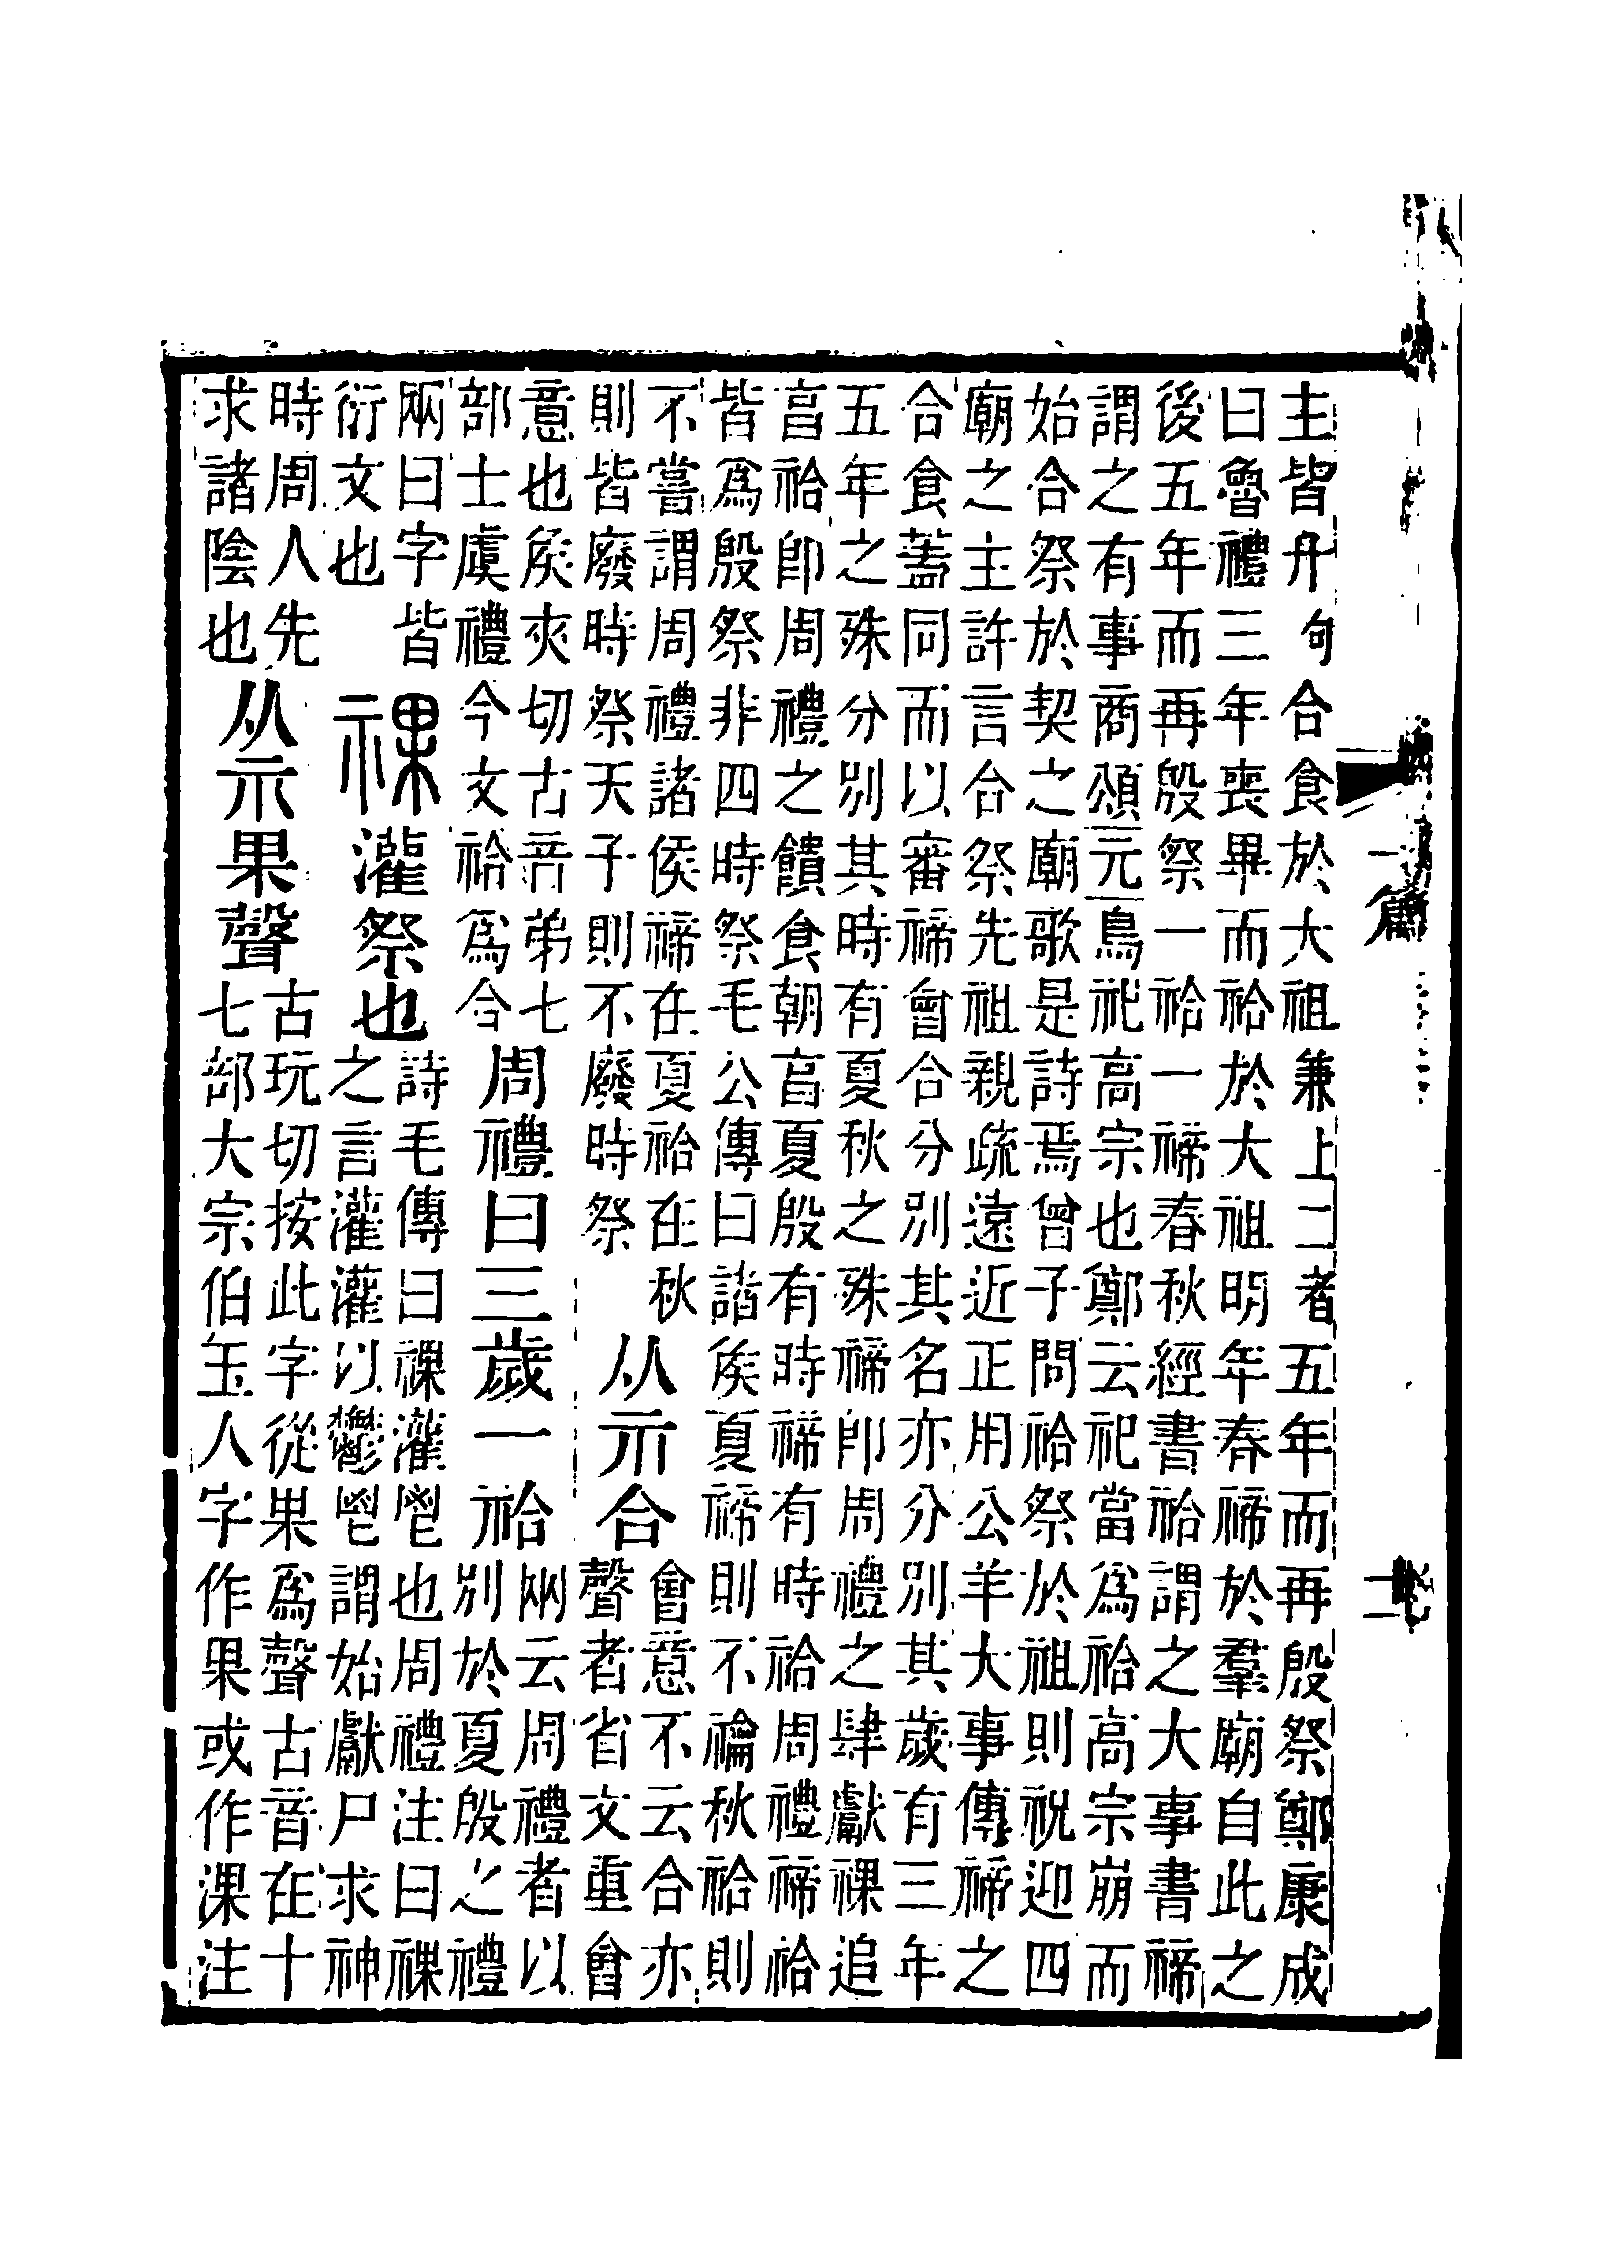 主皆升句合食於大祖兼上二者五年而再殷祭鄭康成
曰魯禮三年喪畢而祫於大祖明年春禘於羣廟自此之
後五年而再殷祭一祫一禘春秋經書祫謂之大事書禘
謂之有事商頌元鳥祀高宗也鄭云祀當爲祫高宗崩而
始合祭於契之廟歌是詩焉曾子問祫祭於祖則祝迎四
廟之主許言合祭先祖親疏遠近正用公羊大事傳禘之
合食蓋同而以審禘會合分別其名亦分別其歲有三年
五年之殊分別其時有夏秋之殊禘卽周禮之肆獻祼追
亯祫卽周禮之饋食朝亯夏殷有時禘有時祫周禮禘祫
皆爲殷祭非四時祭毛公傳曰諸矦夏禘則不禴秋祫則
不嘗謂周禮諸侯禘在夏祫在秋
則皆廢時祭天子則不廢時祭
从示合
會意不云合亦
聲者省文重會
意也矦夾切古音弟七
部士虞禮今文祫爲合
周禮曰三歲一祫
兩云周禮者以
別於夏殷之禮
兩曰字皆
衍文也
祼灌祭也
詩毛傳曰祼灌鬯也周禮注曰祼
之言灌灌以鬱鬯謂始獻尸求神
時周人先
求諸陰也
从示果聲
古玩切按此字從果爲聲古音在十
七部大宗伯玉人字作果或作淉注
一篇